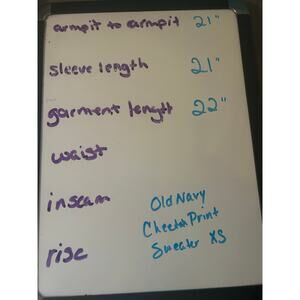 armpit to armpit 21"
sleeve length 21"
garment lengtt 22"
waist
inseam
rise
Old Navy
Cheetah Print
Sweater XS